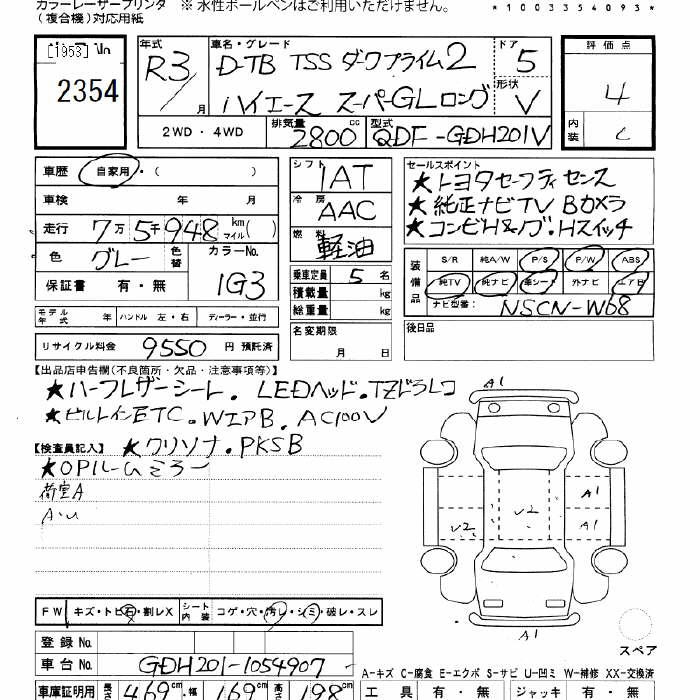 カラーレーザープリンタ ※ 水性ボールペンはご利用いただけません。
(複合機)対応用紙
*1003354093*
[1953]
2354
年式 車名・グレード ドア 評価点
R3/ 月
D-TB TSS ダークプライム2 5
ハイエース スーパーGLロング 形状 V
4
内装 C
2WD・4WD 排気量 2800 cc 型式 QDF-GDH201V
車歴 自家用・( )
車検 年 月
走行 7万5千948 km マイル( )
色 グレー 色替 カラーNo. 1G3
保証書 有・無
シフト IAT
冷房 AAC
燃料 軽油
乗車定員 5 名
積載量 kg
総重量 kg
名変期限 月 日
セールスポイント
★トヨタセーフティセンス
★純正ナビTV Bカメラ
★コンビH&ノブ・Hスイッチ
装備品 S/R 純A/W P/S P/W ABS
純TV 純ナビ 革シート 外ナビ エアB
ナビ型番: NSCN-W68
後日品
モデル年式 年 ハンドル 左・右 ディーラー・並行
リサイクル料金 9550 円 預託済
【出品店申告欄(不良箇所・欠品・注意事項等)】
★ハーフレザーシート. LEDヘッド. TZドラレコ
★ビルトインETC. WエアB. AC100V
【検査員記入】 ★クリソナ. PKSB
★OPルームミラー
荷室A
A・U
A1
A1
V2 V2 A1
A1
スペア
FW キズ・トビ石・割レX シート内装 コゲ・穴・汚レ・シミ・破レ・スレ
登録 No.
車台 No. GDH201-1054907
A-キズ C-腐食 E-エクボ S-サビ U-凹ミ W-補修 XX-交換済
車庫証明用 長さ 469cm 幅 169cm 高さ 198cm
工具 有・無 ジャッキ 有・無